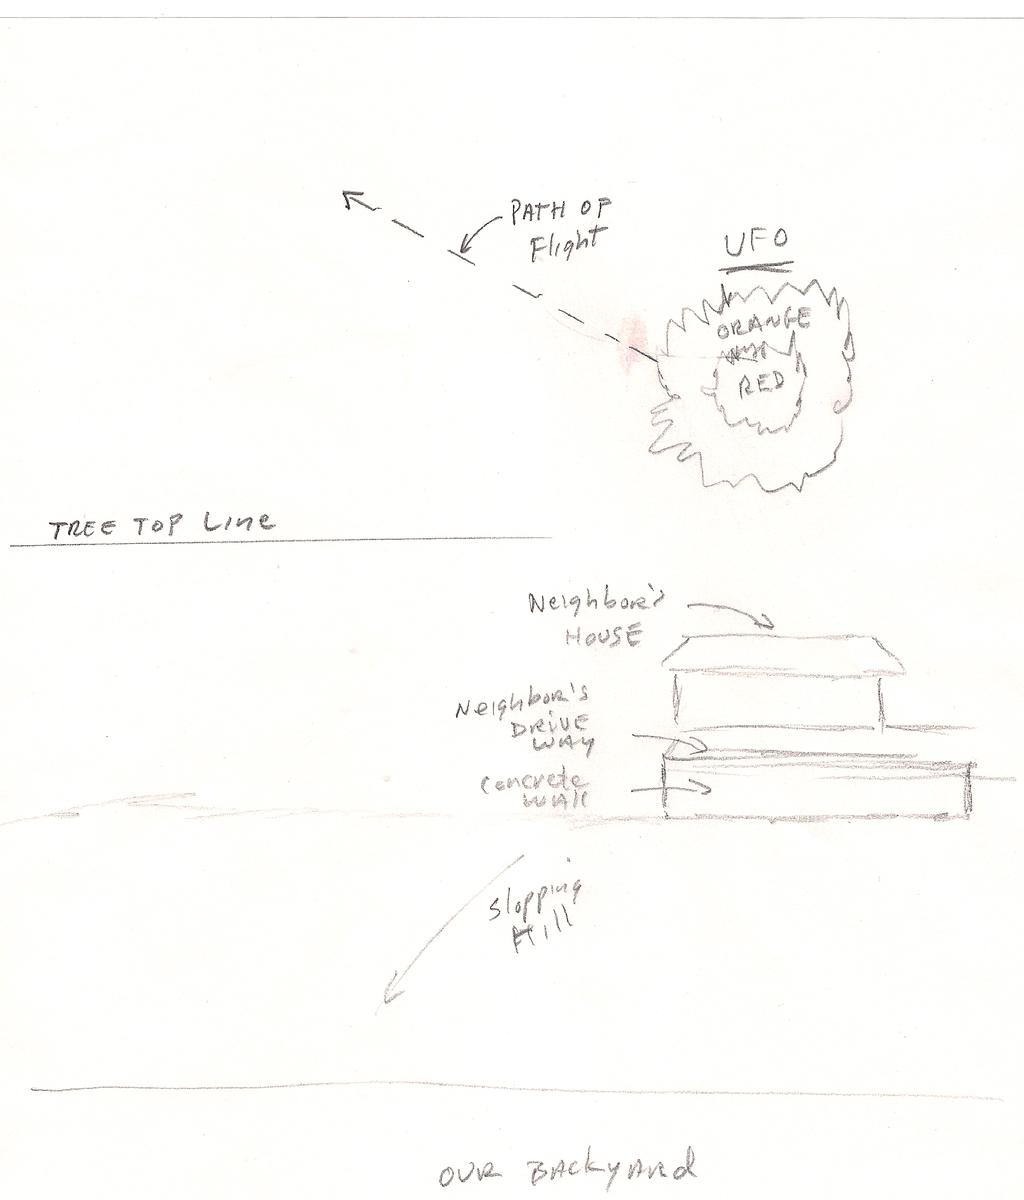 PATH OF
Flight
UFO
ORANGE
RED
TREE TOP Line
Neighbor's
HOUSE
Neighbor's
DRIVE
WAY
Concrete
WAll
Slopping
Hill
OUR BACkyARd